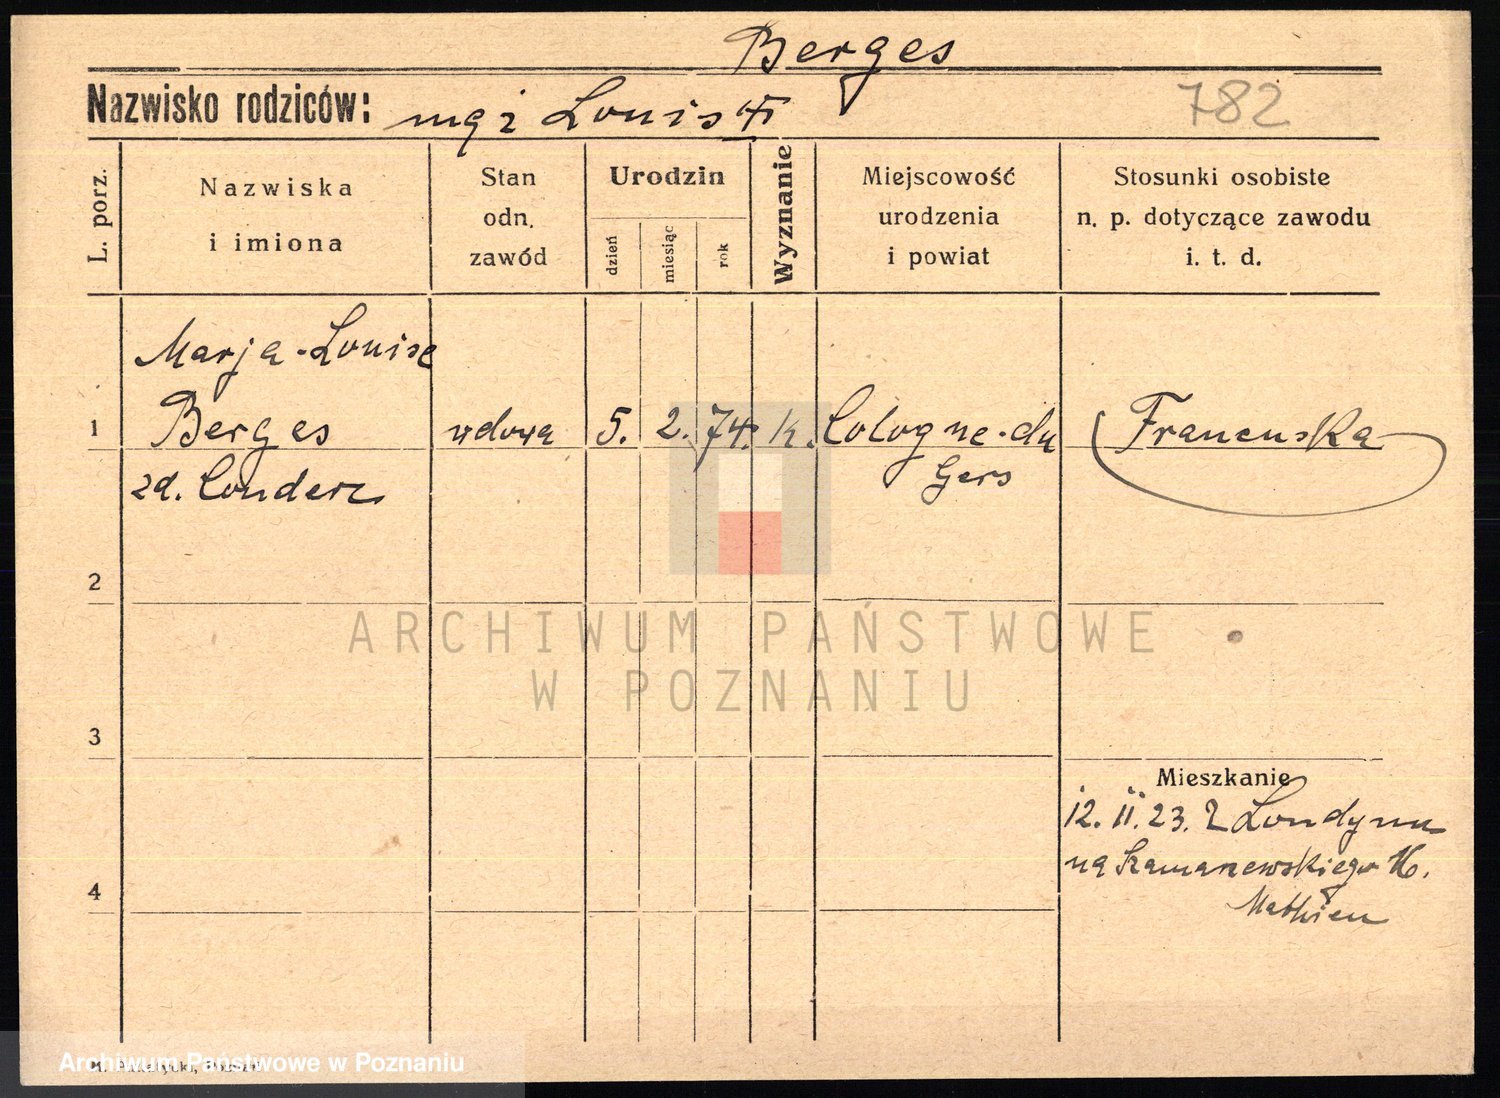 Berges
Nazwisko rodziców: mąż Louis
782
L. porz.
Nazwiska
i imiona
Stan
odn.
zawód
Urodzin
dzień
miesiąc
rok
Wyznanie
Miejscowość
urodzenia
i powiat
Stosunki osobiste
n. p. dotyczące zawodu
i. t. d.
Marja-Louise
1 Berges wdowa 5. 2. 74. k. Cologne-du Francuska
Gers
zd.
2
3
4
Mieszkanie
12. II. 23. z Londynu
na Szamarzewskiego 16.
Mathieu
ARCHIWUM PAŃSTWOWE
W POZNANIU
Archiwum Państwowe w Poznaniu